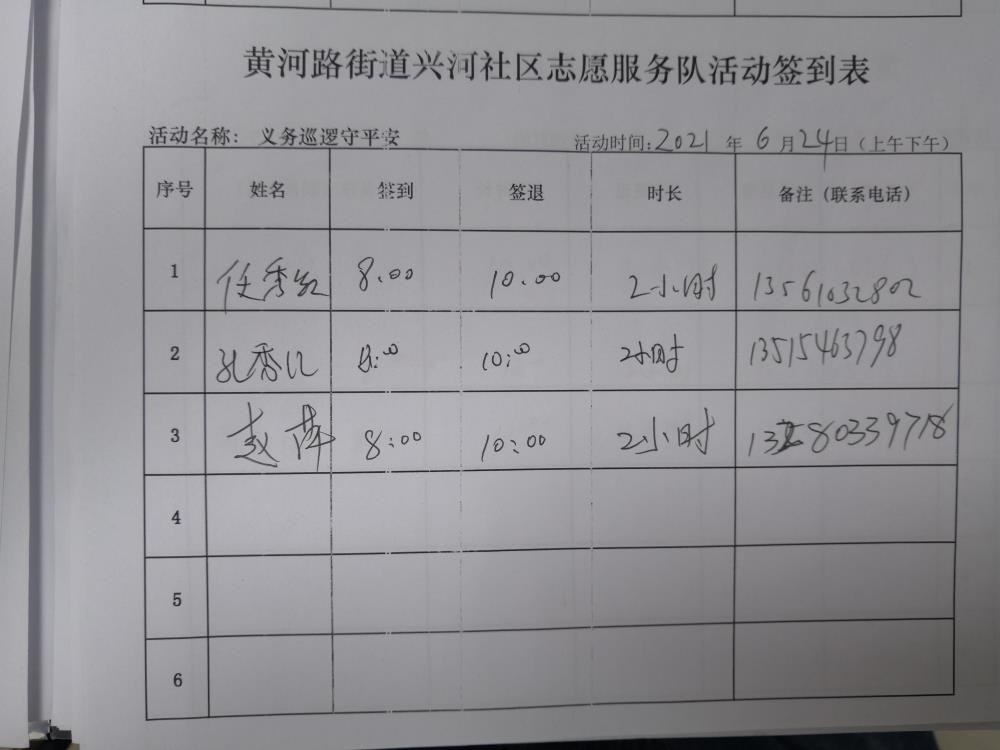 黄河路街道兴河社区志愿服务队活动签到表
活动名称: 义务巡逻守平安 活动时间:2021 年 6 月 24 日（上午下午）
序号 姓名 签到 签退 时长 备注（联系电话）
1 任秀红 8:00 10:00 2小时 13561032802
2 孔秀 8:00 10:00 2小时 13515463798
3 赵萍 8:00 10:00 2小时
4
5
6